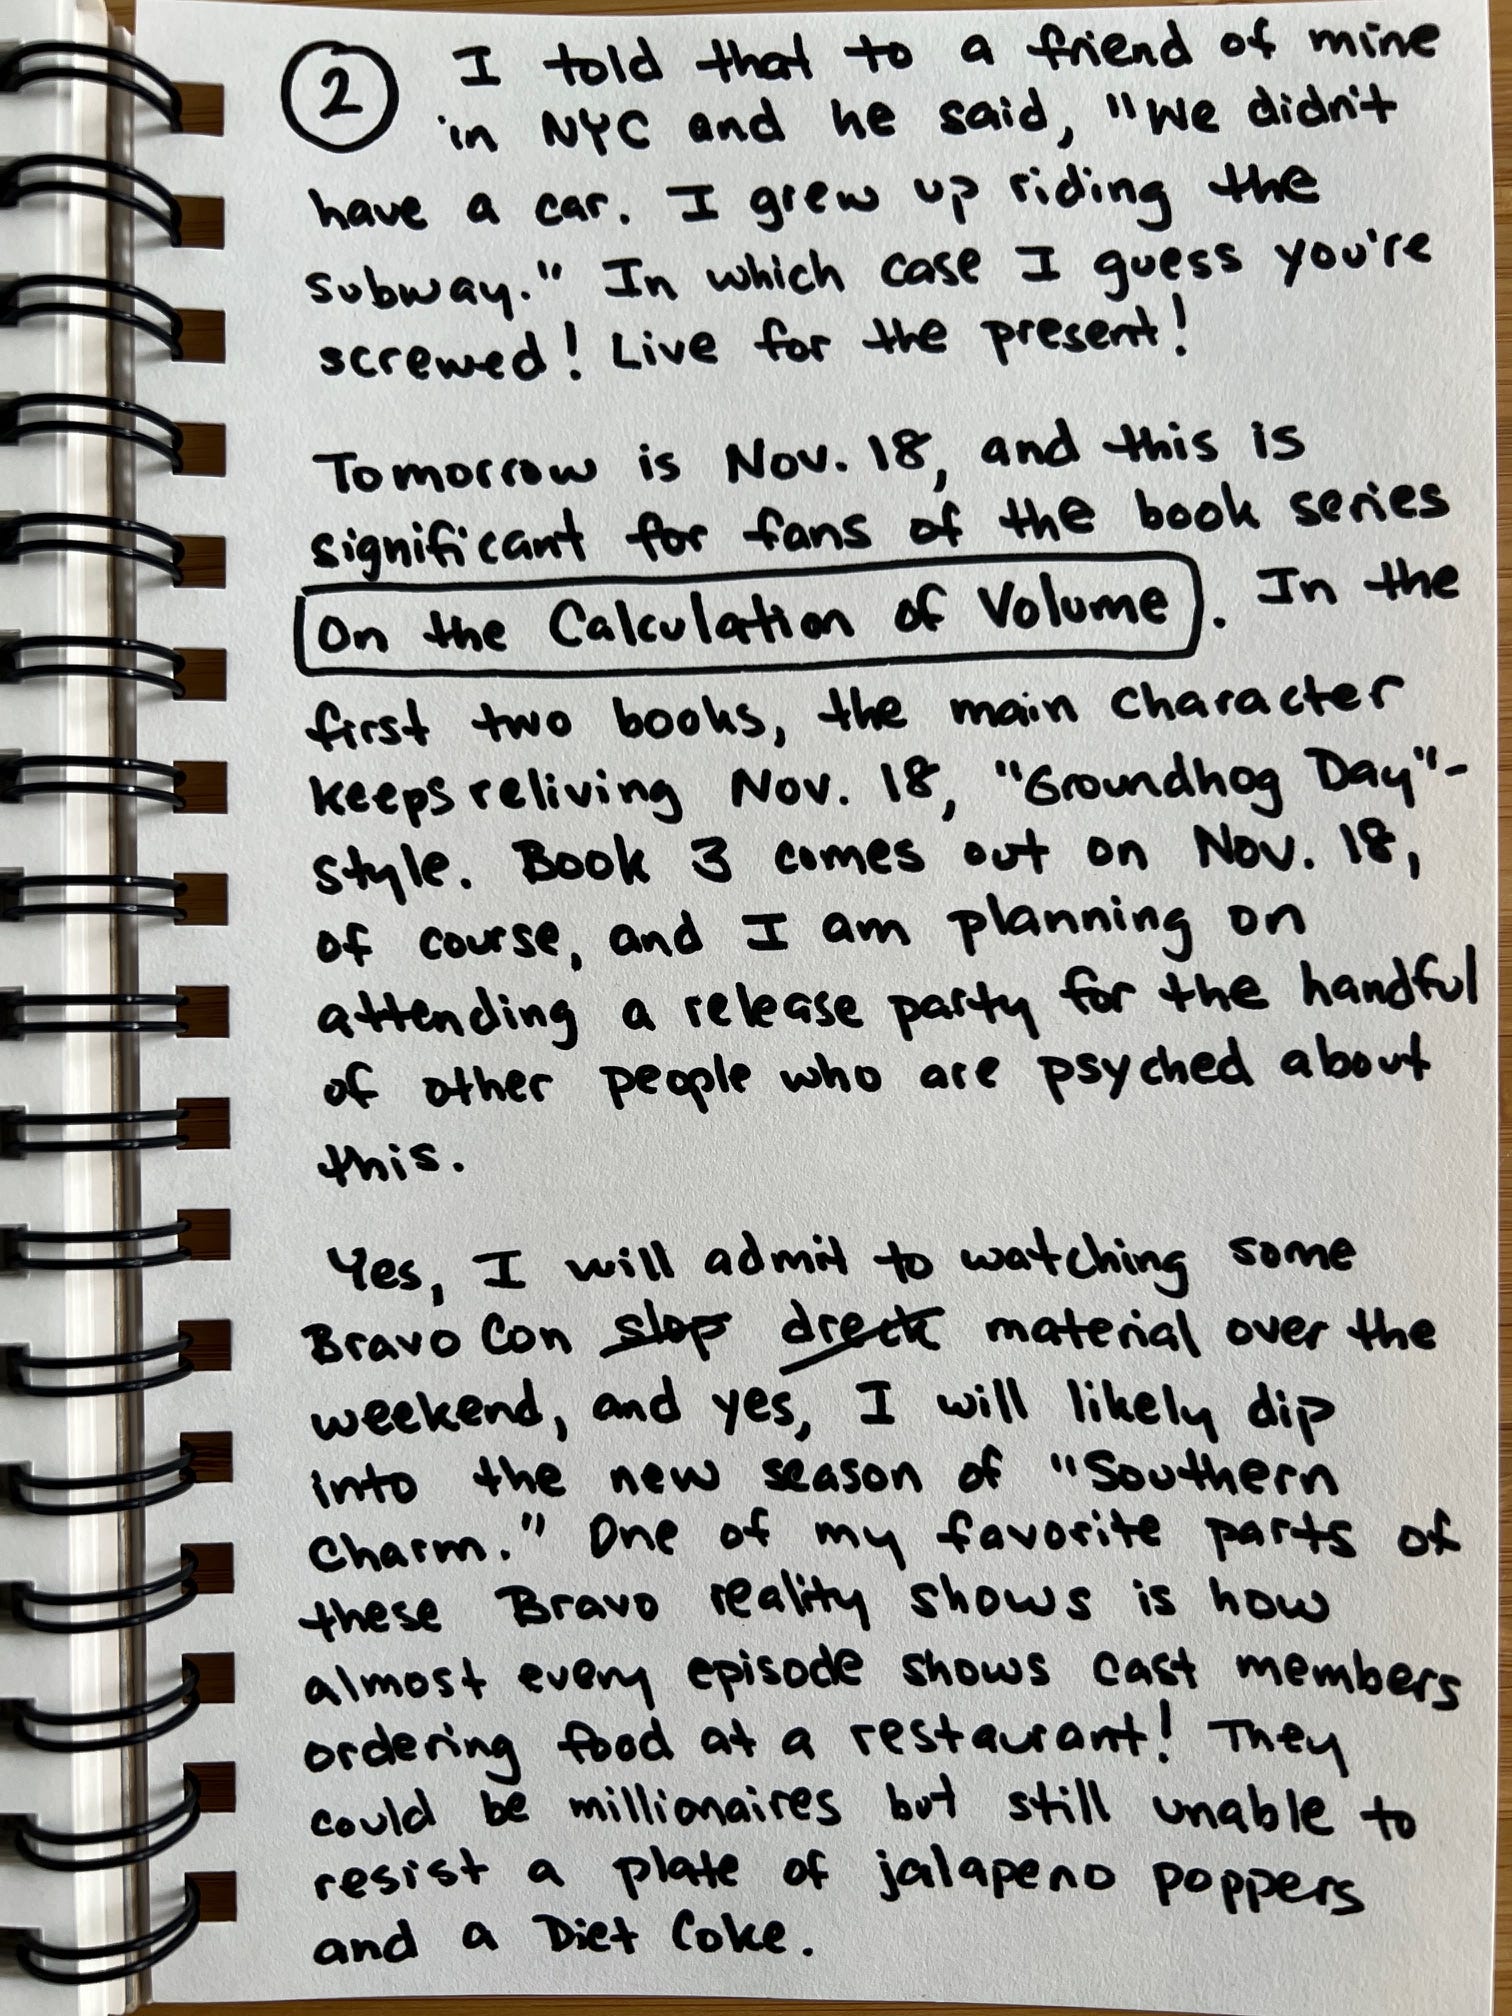 ② I told that to a friend of mine
in NYC and he said, "We didn't
have a car. I grew up riding the
subway." In which case I guess you're
screwed! Live for the present!
Tomorrow is Nov. 18, and this is
significant for fans of the book series
On the Calculation of Volume. In the
first two books, the main character
keeps reliving Nov. 18, "Groundhog Day"-
style. Book 3 comes out on Nov. 18,
of course, and I am planning on
attending a release party for the handful
of other people who are psyched about
this.
Yes, I will admit to watching some
BravoCon slop dreck material over the
weekend, and yes, I will likely dip
into the new season of "Southern
Charm." One of my favorite parts of
these Bravo reality shows is how
almost every episode shows cast members
ordering food at a restaurant! They
could be millionaires but still unable to
resist a plate of jalapeno poppers
and a Diet Coke.